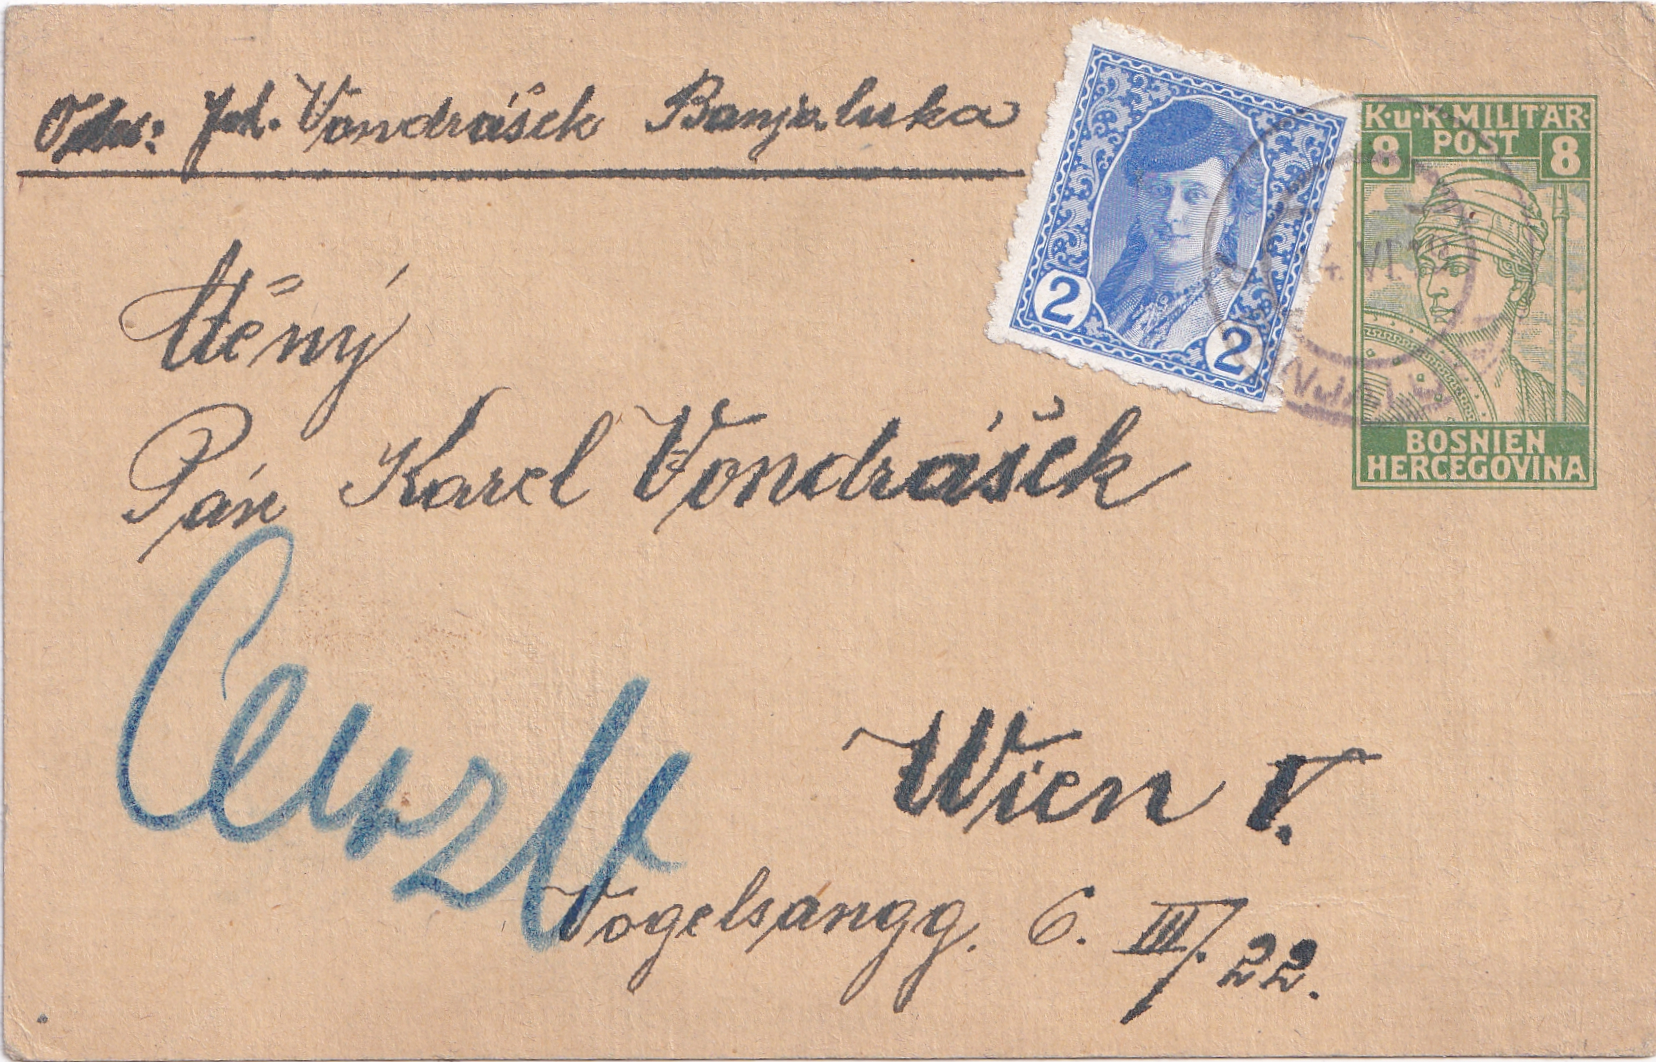 Vondrášek Banjaluka
K·u·K·MILITÄR·
POST
8 8
2 2
VI
BOSNIEN
HERCEGOVINA
Ctěný
Pán Karel Vondrášek
Wien V.
Vogelsangg. 6. III/. 22.